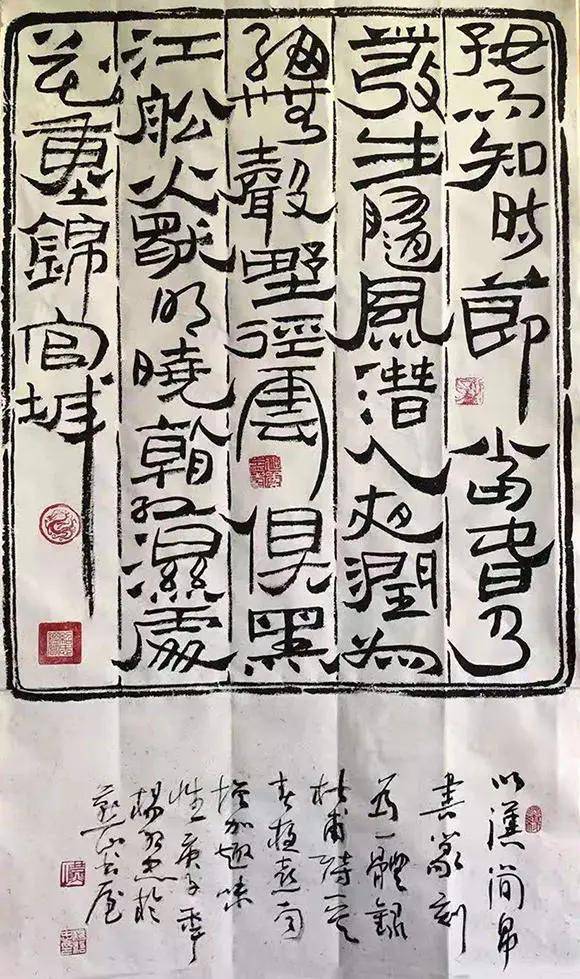 好雨知时節當春乃
發生隨風潜入夜潤物
細無聲野徑雲俱黑
江舩火獨明曉看紅濕處
花重錦官城
以漢簡帛
書篆刻
为一體録
杜甫詩一首
春夜喜雨
增加趣味
性庚子季
楊於
燕山書屋